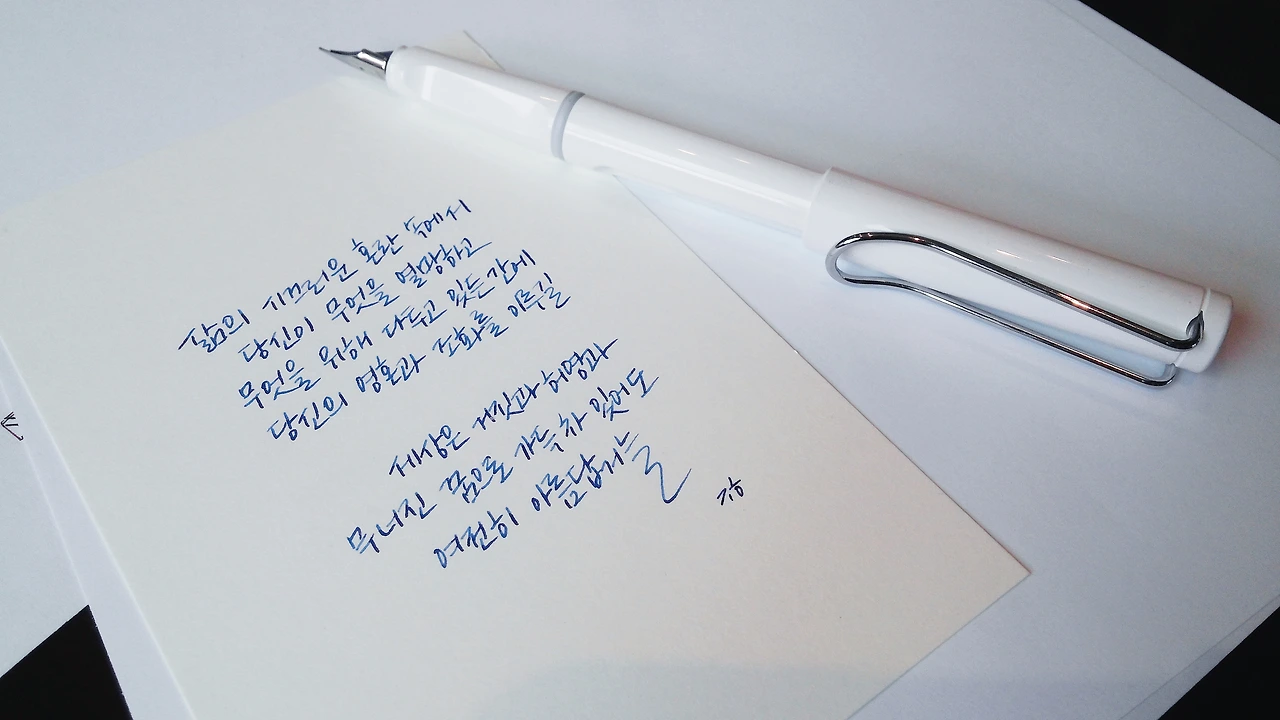 삶의 시끄러운 혼란 속에서
당신이 무엇을 열망하고
무엇을 위해 다투고 있는간에
당신의 영혼과 조화를 이루길
세상은 거짓과 허영과
무너진 꿈으로 가득 차 있어도
여전히 아름답거늘